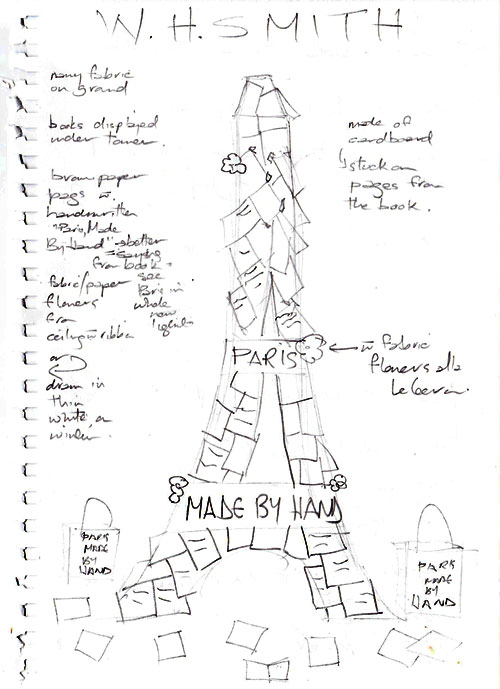 W.H.SMITH
navy fabric
on ground
books displayed
under tower.
brown paper
bags w.
handwritten
"Paris, Made
By Hand" → better
= saying
from book -
see
Paris in
whole
new
light
fabric/paper
flowers
from
ceiling w ribbon
or
draw in
thin
white on
window.
made of
cardboard
stuck on
pages from
the book.
PARIS
← w fabric
flowers alla
MADE BY HAND
PARIS
MADE
BY
HAND
PARIS
MADE
BY
HAND